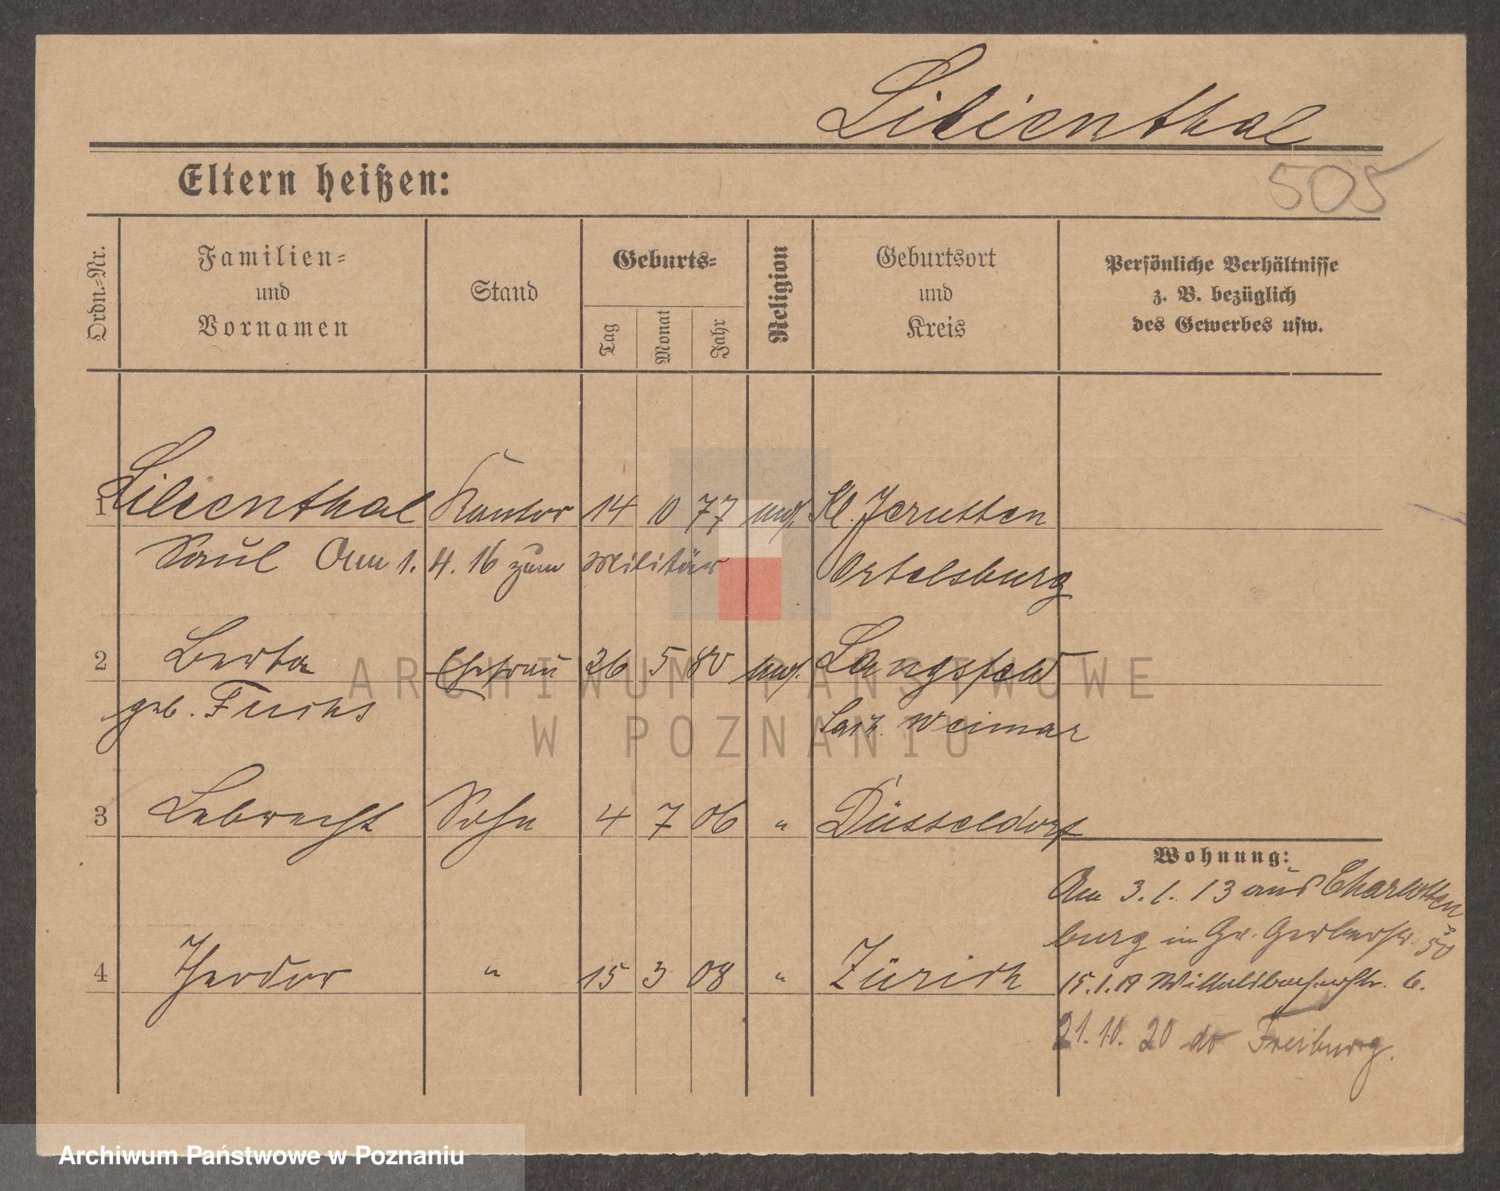 Lilienthal
Eltern heißen:
505
Ordn.-Nr.
Familien-
und
Vornamen
Stand
Geburts-
Tag
Monat
Jahr
Religion
Geburtsort
und
Kreis
Persönliche Verhältnisse
z. B. bezüglich
des Gewerbes usw.
1 Lilienthal Kantor 14 10 77 mos. Kl. Jerutten
Saul Am 1. 4. 16 zum Militär Ortelsburg
2 Berta Ehefrau 26 5 80 mos.
geb. Fuchs Weimar
3 Lebrecht Sohn 4 7 06 " Düsseldorf
4 Theodor " 15 3 08 " Zürich
Wohnung:
Am 3. 1. 13 aus Charlotten
burg in Gr. Gerberstr. 50
15.1.19 6.
21. 10. 20 Freiburg.
ARCHIWUM PAŃSTWOWE
W POZNANIU
Archiwum Państwowe w Poznaniu